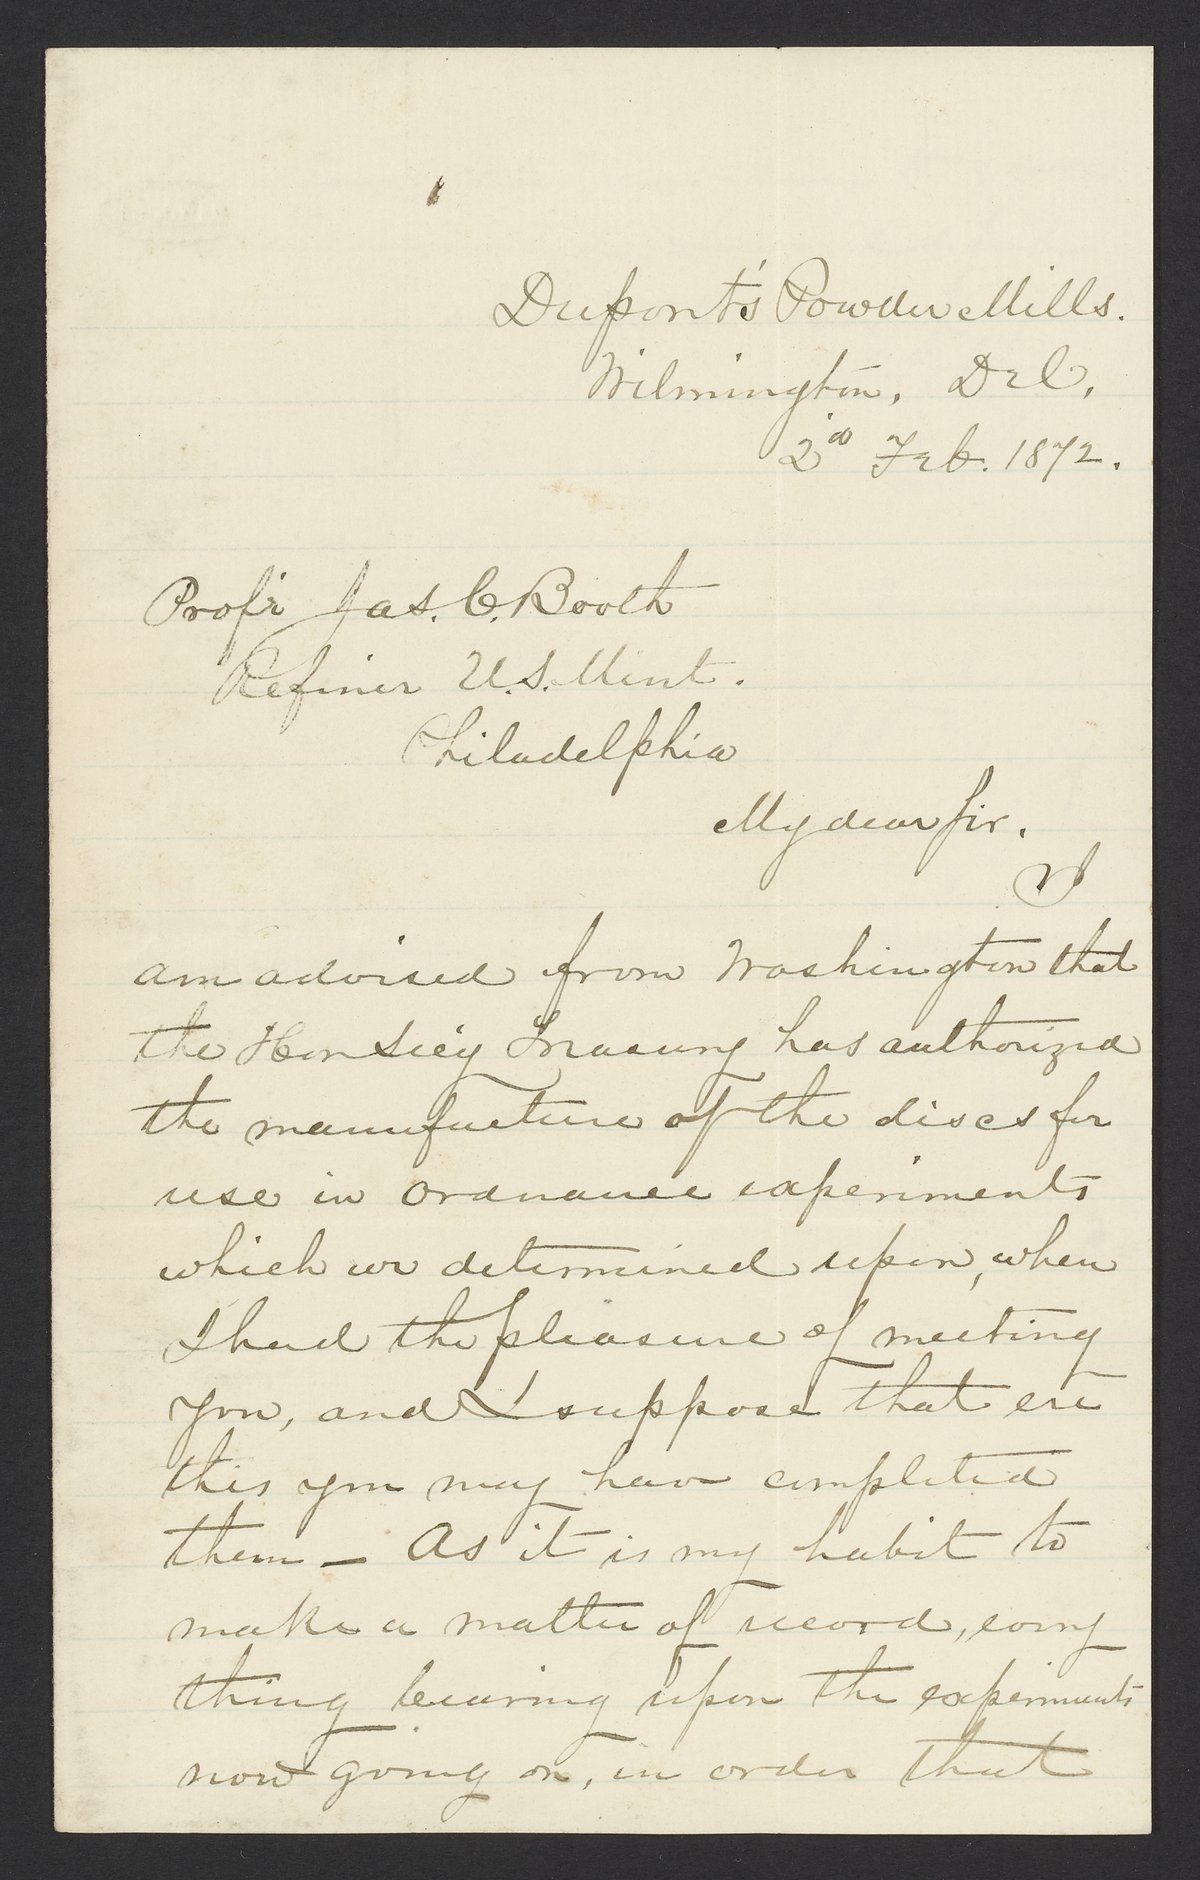 Dupont's Powder Mills.
Wilmington, Del,
2d Feb. 1872.
Prof'r Jas. C. Booth
Refiner U.S. Mint.
Philadelphia
My dear Sir,
I
am advised from Washington that
the Hon Sec'y Treasury has authorized
the manufacture of the discs for
use in Ordnance experiments
which we determined upon, when
I had the pleasure of meeting
you, and I suppose that ere
this you may have completed
them — As it is my habit to
make a matter of record, every
thing bearing upon the experiments
now going on, in order that